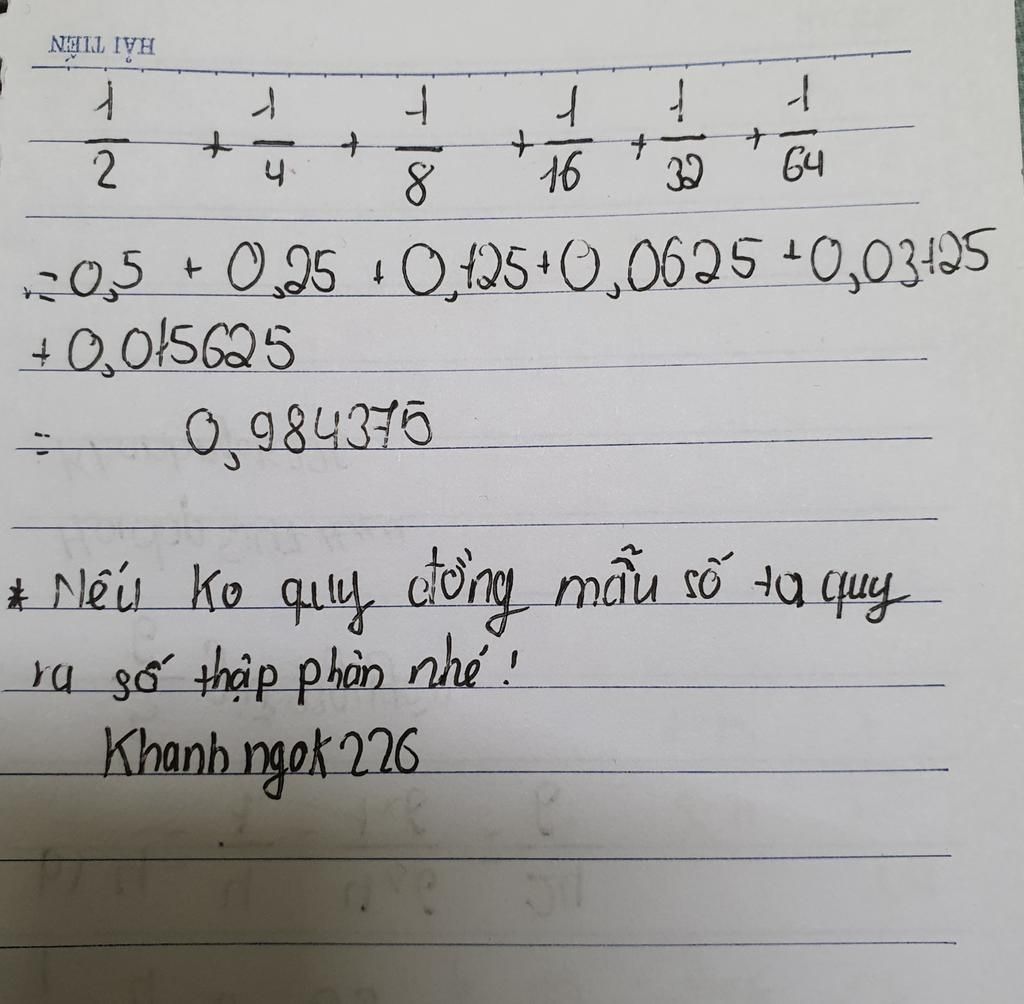 HẢI TIẾN
1/2 + 1/4 + 1/8 + 1/16 + 1/32 + 1/64
= 0,5 + 0,25 + 0,125 + 0,0625 + 0,03125
+ 0,015625
= 0,984375
* Nếu ko quy đồng mẫu số ta quy
ra số thập phân nhé!
Khanhngok226